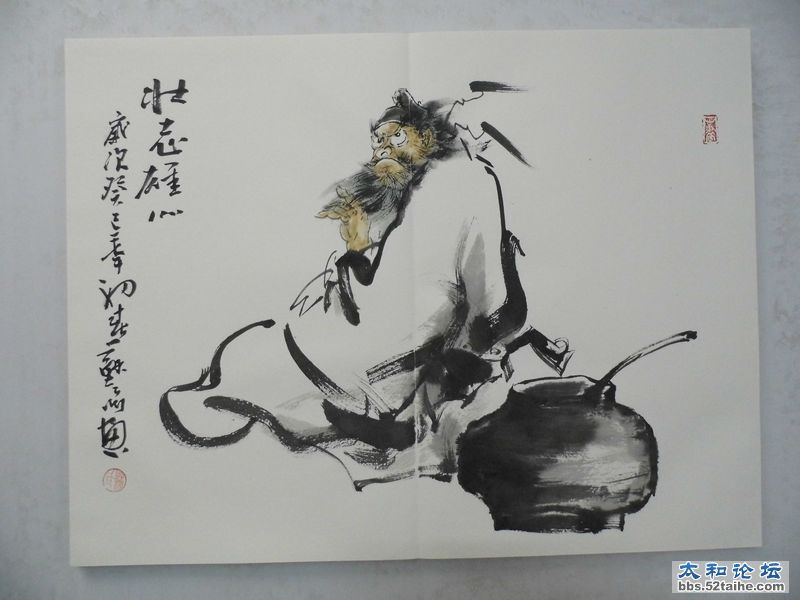 壮志雄心
歲次癸巳年初春蘇
太和论坛
bbs.52taihe.com